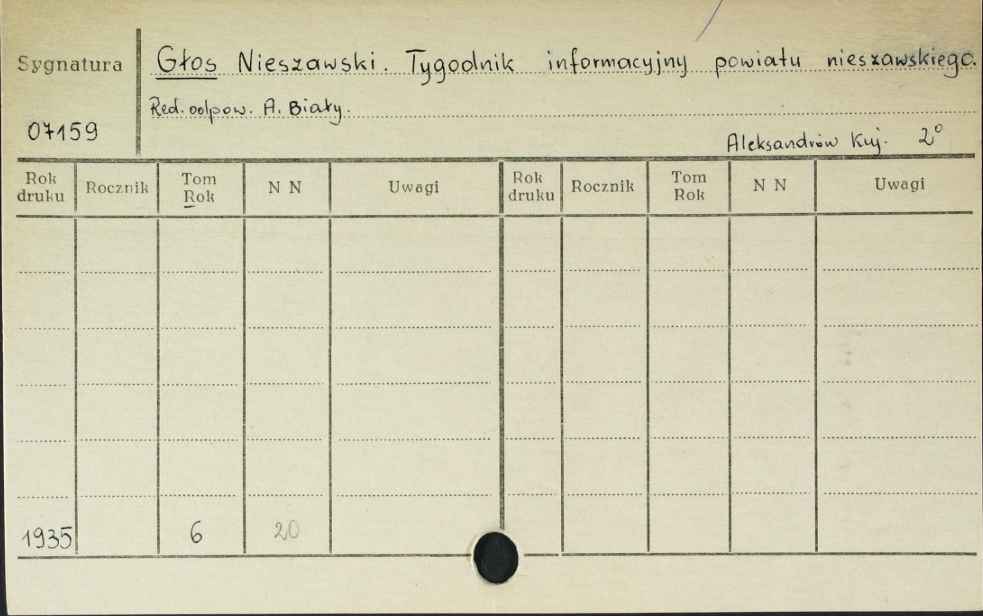 Sygnatura
Głos Nieszawski. Tygodnik informacyjny powiatu nieszawskiego.
Red. odpow. A. Biały.
07159
Aleksandrów Kuj. 2°
Rok druku Rocznik Tom Rok N N Uwagi Rok druku Rocznik Tom Rok N N Uwagi
1935 6 20